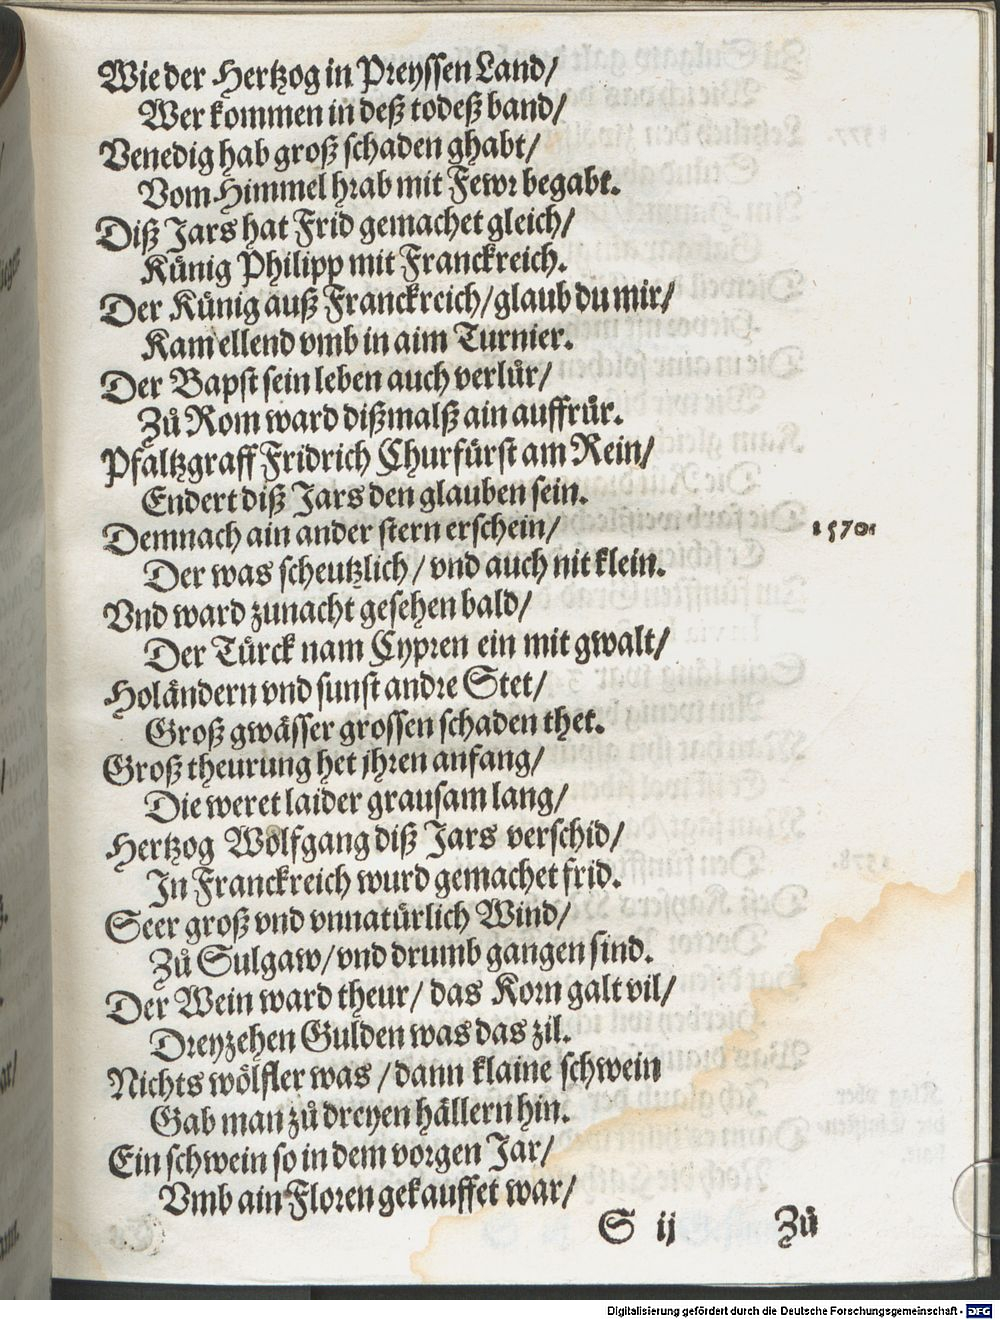 Wie der Hertzog in Preyssen Land/
Wer kommen in deß todeß band/
Venedig hab groß schaden ghabt/
Vom Himmel hrab mit Fewr begabt.
Diß Jars hat Frid gemachet gleich/
Künig Philipp mit Franckreich.
Der Künig auß Franckreich/ glaub du mir/
Kam ellend vmb in aim Turnier.
Der Bapst sein leben auch verlůr/
Zů Rom ward dißmalß ain auffrůr.
Pfaltzgraff Fridrich Churfürst am Rein/
Endert diß Jars den glauben sein.
Demnach ain ander stern erschein/
1570.
Der was scheutzlich/ vnd auch nit klein.
Vnd ward zunacht gesehen bald/
Der Türck nam Cypren ein mit gwalt/
Holändern vnd sunst andre Stet/
Groß gwässer grossen schaden thet.
Groß theurung het jhren anfang/
Die weret laider grausam lang/
Hertzog Wolfgang diß Jars verschid/
In Franckreich wurd gemachet frid.
Seer groß vnd vnnatürlich Wind/
Zů Sulgaw/ vnd drumb gangen sind.
Der Wein ward theur/ das Korn galt vil/
Dreyzehen Gulden was das zil.
Nichts wölfler was/ dann klaine schwein
Gab man zů dreyen hällern hin.
Ein schwein so in dem vorgen Jar/
Vmb ain Floren gekauffet war/
S ij
Zů
Digitalisierung gefördert durch die Deutsche Forschungsgemeinschaft - DFG